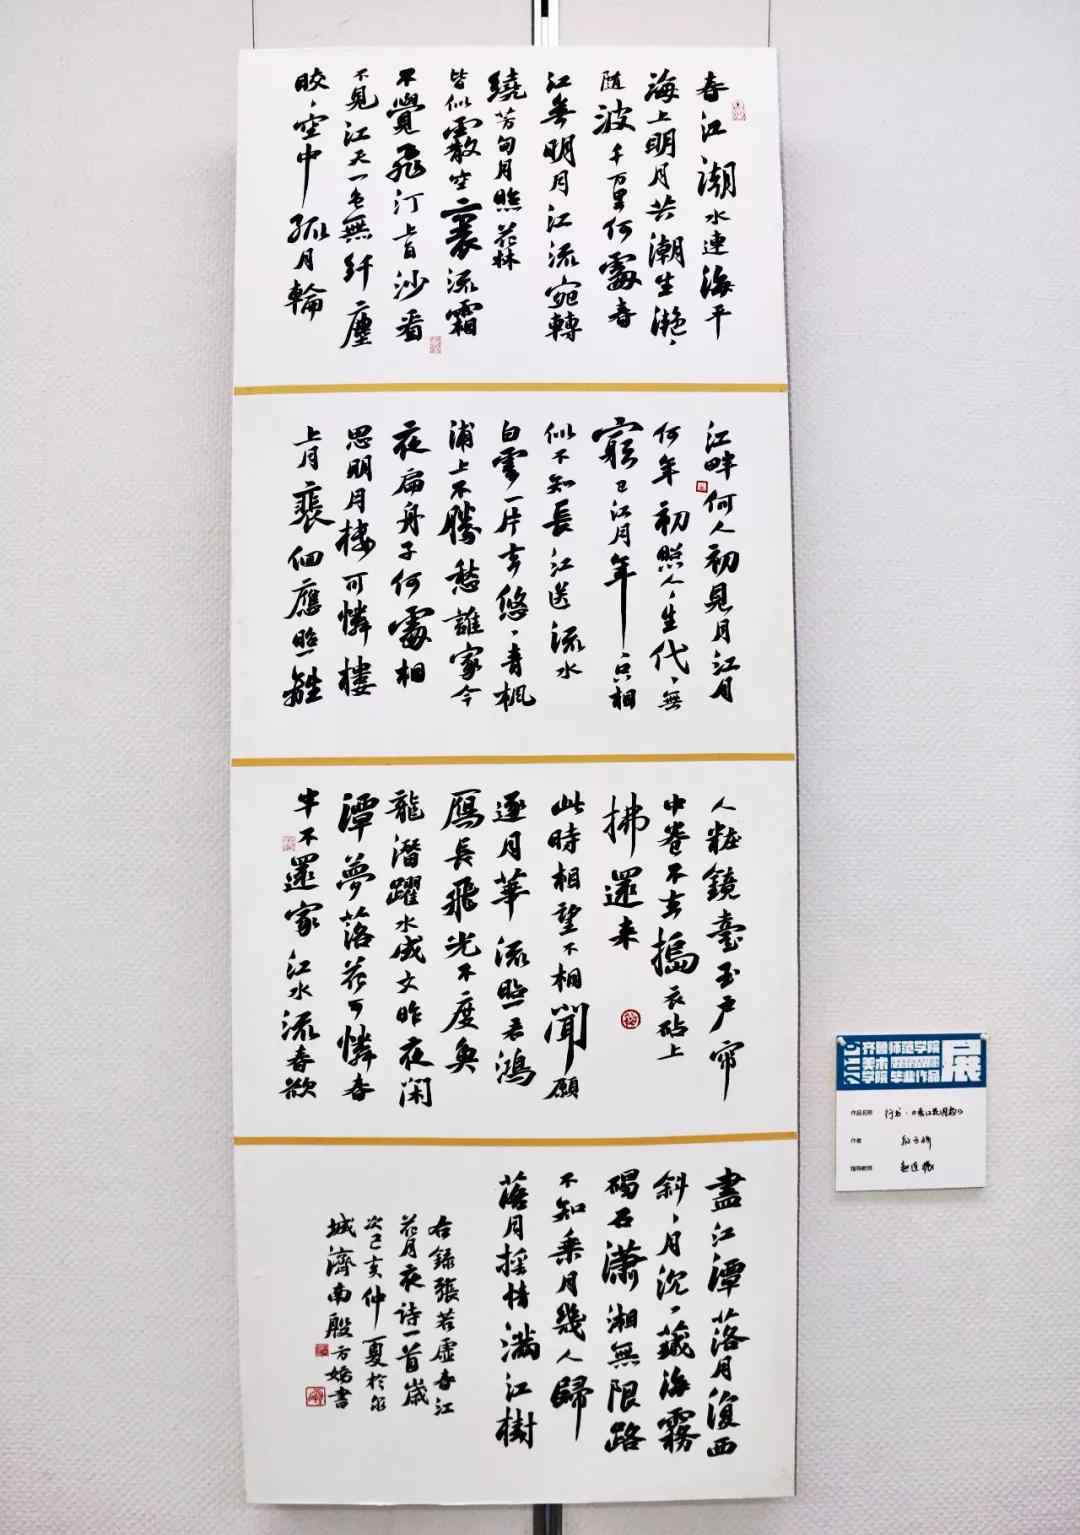 春江潮水連海平
海上明月共潮生灔、
随波千万里何處春
江無明月江流宛轉
繞芳甸月照花林
皆似霰空裏流霜
不覺飛汀上白沙看
不見江天一色無纤塵
皎、空中孤月輪
江畔何人初見月江月
何年初照人、生代、無
窮已江月年、只相
似不知長江送流水
白雲一片去悠、青楓
浦上不勝愁誰家今
夜扁舟子何處相
思明月樓可憐樓
上月裴佪應照離
人粧鏡臺玉戶帘
中卷不去搗衣砧上
拂還来
此時相望不相聞願
逐月華流照君鴻
雁長飛光不度魚
龍潛躍水成文昨夜闲
潭夢落花可憐春
半不還家江水流春欲
盡江潭落月復西
斜、月沉、藏海霧
碣石瀟湘無限路
不知乘月幾人歸
落月摇情满江樹
右錄張若虛春江
花月夜诗一首歲
次己亥仲夏於泉
城濟南殷方嬌書
2019 齐鲁师范学院
美术学院 毕业作品展
作品名称 行书·《春江花月夜》
作者
指导教师